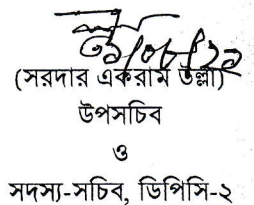 (সরদার একরাম উল্লা)
উপসচিব
ও
সদস্য-সচিব, ডিপিসি-২